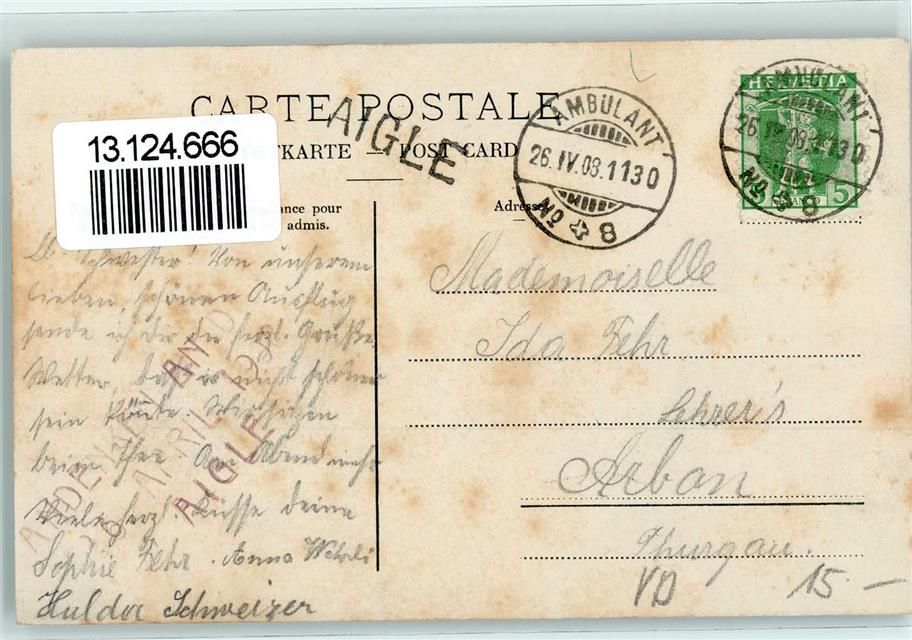 CARTE POSTALE
TKARTE — POST CARD
ance pour
admis.
Adresse
13.124.666
AIGLE
AMBULANT
26.IV.08.1130
No 8
HELVETIA
5
AMBULANT
26.IV.08.1130
No 8
Schwester! Von unserem
lieben, schönen Ausflug
sende ich dir die herzl. Grüße
Wetter, daß es nicht schöner
sein könnte. Wir sitzen
beim Thee. Am Abend mehr
Viele herzl. Küsse deine
Sophie Fehr. Anna Wehrli
Hulda Schweizer
ANDENKEN AN D
26 APRIL 190
AIGLE
Mademoiselle
Ida Fehr
Lehrer's
Arbon
Thurgau.
VD 15.—